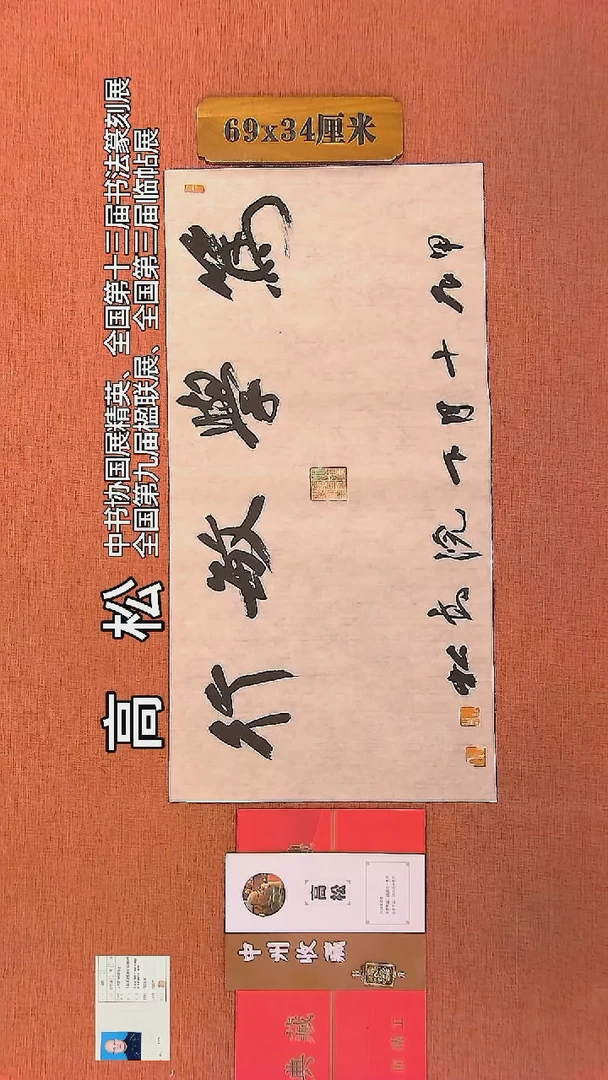 69x34厘米
高 松
中书协国展精英、全国第十三届书法篆刻展
全国第九届楹联展、全国第三届临帖展
篤學敏行
甲辰十月下浣高松
高松
中州收藏
典藏